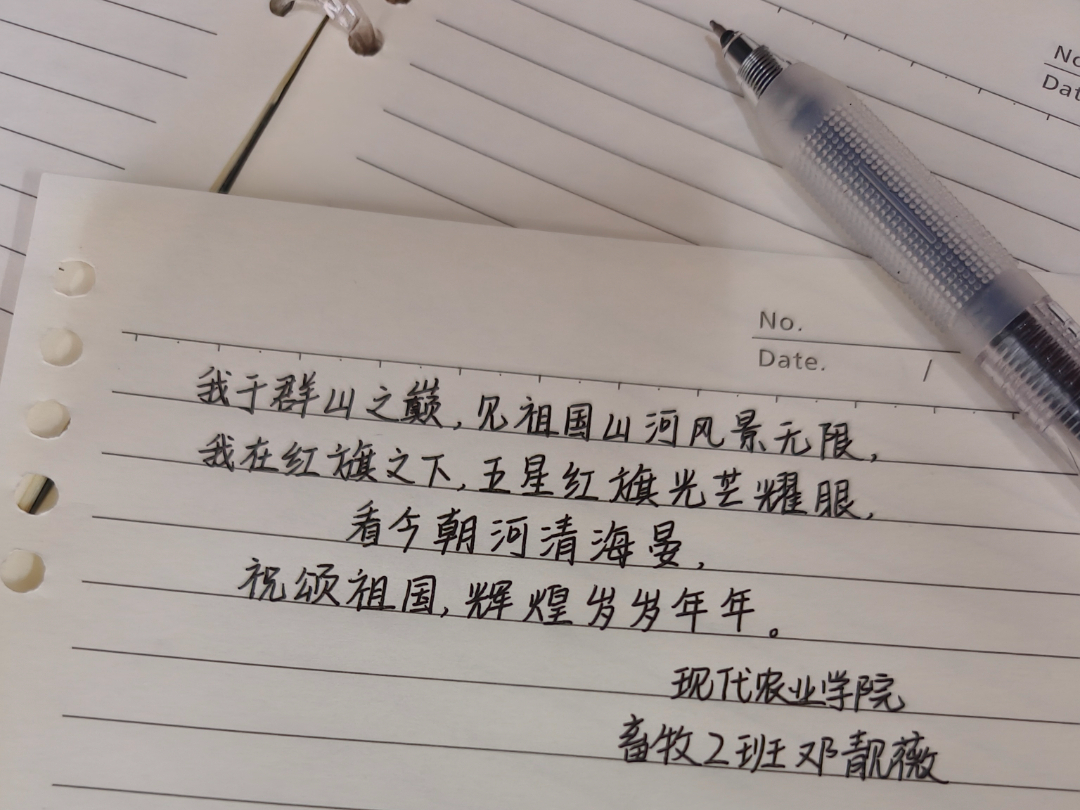 No
Dat
No.
Date. /
我于群山之巅,见祖国山河风景无限,
我在红旗之下,五星红旗光芒耀眼,
看今朝河清海晏,
祝颂祖国,辉煌岁岁年年。
现代农业学院
畜牧2班邓靓薇